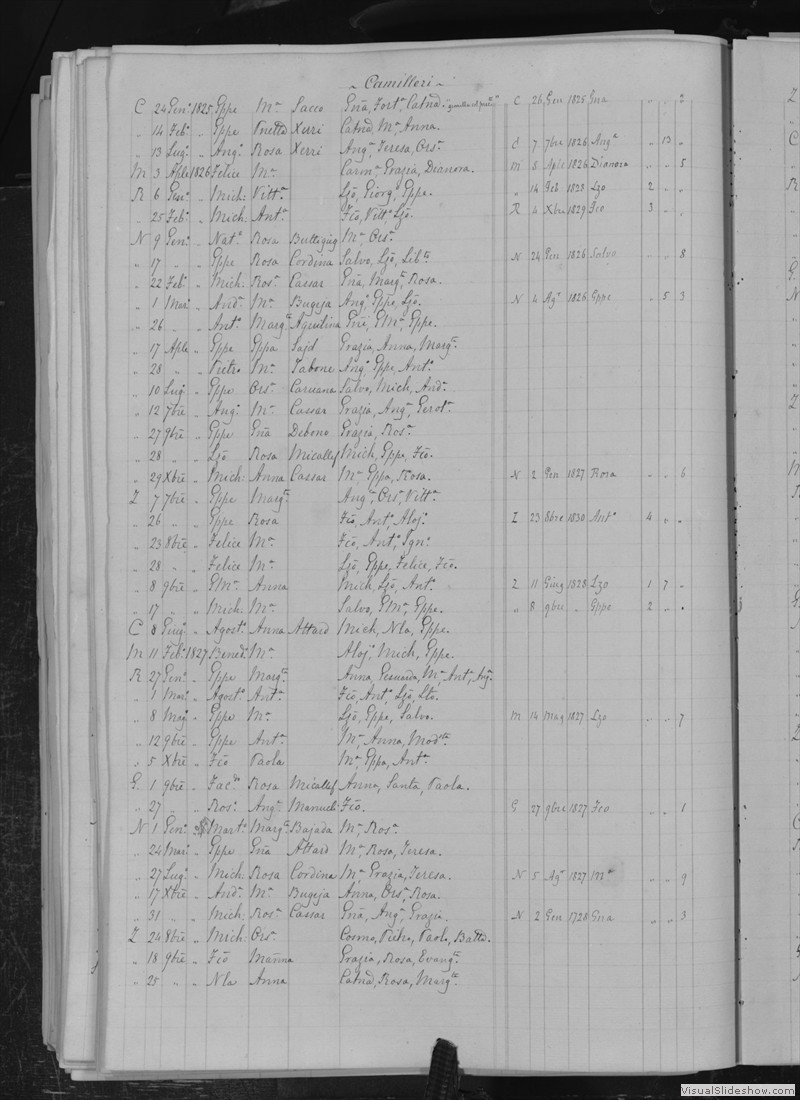 ~ Camilleri ~
C 24 Genº 1825 Gppe Mª Sacco Gñã, Fortª, Catnd. C 26 Gen 1825 Gna „ „ 2
„ 14 Febº „ Gppe Xerri Catnd, Mª, Anna.
„ 13 Lugº „ Angº Rosa Xerri Angª, Teresa, Orsª. C 7 7bre 1826 Angª „ 13 „
M 3 Aple 1826 Felice Mª Carmª, Grazia, Dianora. M 8 Aple 1826 Dianora „ „ 5
R 6 Genº „ Mich: Vittª Ljõ, Giorg, Gppe. „ 14 Feb 1828 Lzo 2 „ „
„ 25 Febº „ Mich: Antª Fcõ, Vittª Ljõ. R 4 Xbre 1829 Fco 3 „ „
N 9 Genº „ Natº Rosa Buttigieg Mª, Orsª.
„ 17 „ „ Gppe Rosa Cordina Salvo, Ljõ, Libª. N 24 Gen 1826 Salvo „ „ 8
„ 22 Febº „ Mich: Rosª Cassar Gñã, Margª, Rosa.
„ 1 Marº „ Andº Mª Bugeja Angº, Gppe, Ljõ. N 4 Agº 1826 Gppe „ 5 3
„ 26 „ „ Antº Margª Aquilina Gñi, EMª, Gppe.
„ 17 Aple „ Gppe Gppa Sajd Grazia, Anna, Margª.
„ 28 „ „ Pietro Mª Tabone Angº, Gppe, Antº.
„ 10 Lugº „ Gppe Orsª Caruana Salvo, Mich, Andº.
„ 12 7bre „ Angº Mª Cassar Grazia, Angª, Gerotª.
„ 27 9bre „ Gppe Gñã Debono Grazia, Rosª.
„ 28 „ „ Ljõ Rosa Micallef Mich, Gppe, Fcõ.
„ 29 Xbre „ Mich: Anna Cassar Mª, Gppa, Rosa. N 2 Gen 1827 Rosa „ „ 6
Z 7 7bre „ Gppe Margª Angª, Orsª, Vittª.
„ 26 „ „ Gppe Rosa Fcõ, Antº, Alojº. Z 23 8bre 1830 Antº 4 „ „
„ 23 8bre „ Felice Mª Fcõ, Antº, Ignº.
„ 28 „ „ Felice Mª Ljõ, Gppe, Felice, Fcõ.
„ 8 9bre „ EMª Anna Mich, Ljõ, Antº. Z 11 Giug 1828 Lzo 1 7 „
„ 17 „ „ Mich: Mª Salvo, EMª, Gppe. „ 8 9bre „ Gppe 2 „ „
C 8 Giugº „ Agostº Anna Attard Mich, Nla, Gppe.
M 11 Febº 1827 Benedº Mª Alojº, Mich, Gppe.
R 27 Genº „ Gppe Margª Anna, Mª, Antª, Angª.
„ 1 Marº „ Agostº Antª Fcõ, Antº, Ljõ,
„ 8 Magº „ Gppe Mª Ljõ, Gppe, Salvo. M 14 Mag 1827 Lzo „ „ 7
„ 12 9bre „ Gppe Antª Mª, Anna, Modtª.
„ 5 Xbre „ Fcõ Paola Mª, Gppa, Antª.
G. 1 9bre „ Rosa Micallef Anna, Santa, Paola.
„ 27 „ „ Rosº Angª Manueli Fcõ. G 27 9bre 1827 Fco „ „ 1
N 1 Genº Martº Margª Bajada Mª, Rosª.
„ 24 Marº „ Gppe Gñã Attard Mª, Rosa, Teresa.
„ 27 Lugº „ Mich: Rosa Cordina Mª, Grazia, Teresa. N 5 Agº 1827 Mª „ „ 9
„ 17 Xbre „ Andº Mª Bugeja Anna, Orsª, Rosa.
„ 31 „ „ Mich: Rosª Cassar Gñã, Angª, Grazia. N 2 Gen 1728 Gna „ „ 3
Z 24 8bre „ Mich: Orsª Cosmo, Pietro, Paolo, Batta.
„ 18 9bre „ Fcõ Marina Grazia, Rosa, Evangª.
„ 25 „ „ Nla Anna Catnd, Rosa, Margª.
VisualSlideshow.com